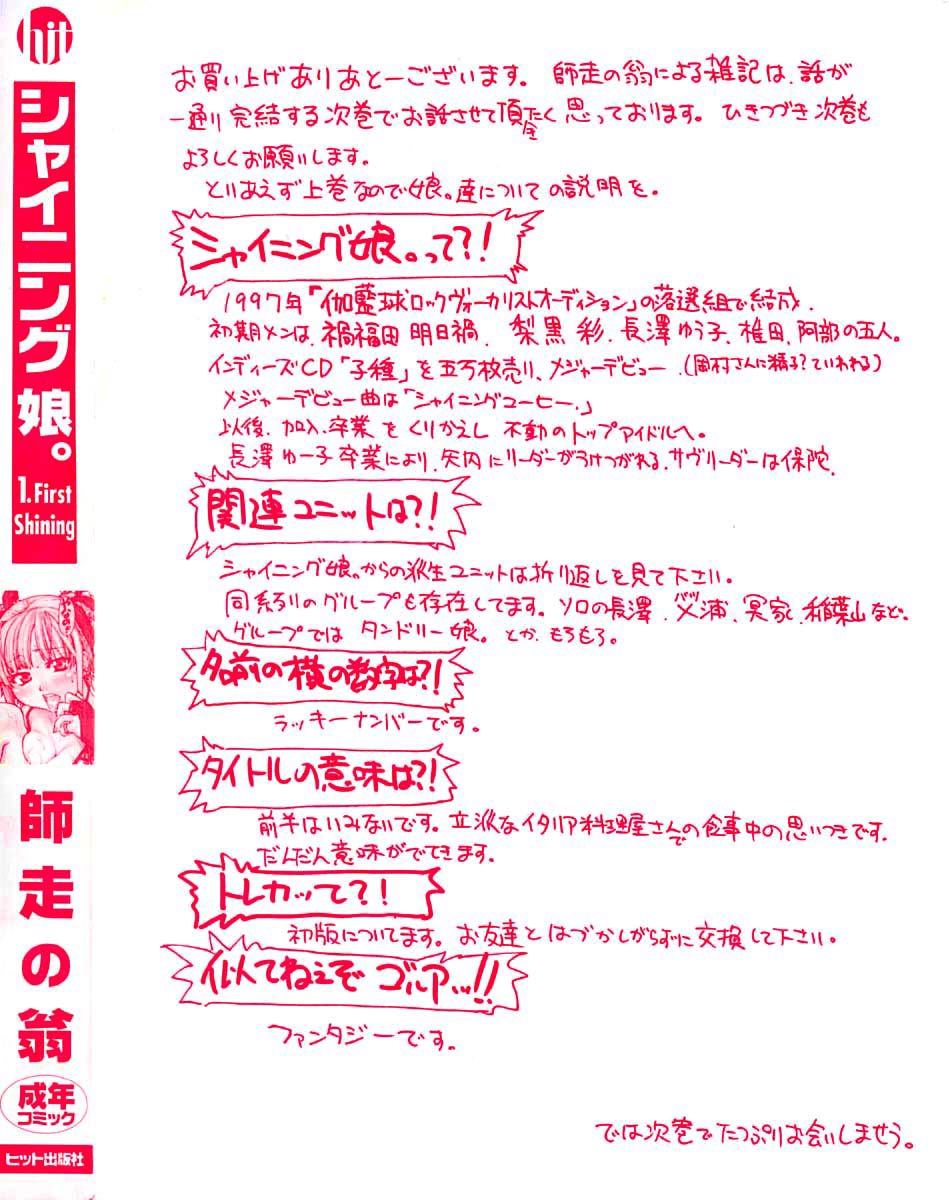 hit
シャイニング娘。
1.First
Shining
師走の翁
成年
コミック
ヒット出版社
お買い上げありあとーございます。 師走の翁による雑記は、話が
一通り完結する次巻でお話させて頂きたく思っております。 ひきつづき次巻も
よろしくお願いします。
とりあえず上巻なので娘。達についての説明を。
シャイニング娘。って?!
1997年「伽藍球ロックヴォーカリストオーディション」の落選組で結成、
初期メンは、禍福田 明日禍、 梨黒 彩、長澤ゆう子、椎田、阿部の五人。
インディーズCD「子種」を五万枚売り、メジャーデビュー、(岡村さんに精子?ていわれる)
メジャーデビュー曲は「シャイニングコーヒー、」
以後、加入、卒業をくりかえし 不動のトップアイドルへ。
長澤ゆー子卒業により、矢内にリーダーがうけつがれる、サヴリーダーは保陀、
関連ユニットは?!
シャイニング娘。からの派生ユニットは折り返しを見て下さい。
同系列のグループも存在してます。ソロの長澤、 浦、冥家、稲葉山など、
グループでは タンドリー娘。とか、もろもろ。
名前の横の数字は?!
ラッキーナンバーです。
タイトルの意味は?!
前半はいみないです。立派なイタリア料理屋さんでの食事中の思いつきです、
だんだん意味がでてきます。
トレカッて?!
初版についてます。お友達とはづかしがらずに交換して下さい。
似てねぇぞ ゴルアッ!!
ファンタジーです。
では次巻でたっぷりお会いしませう。